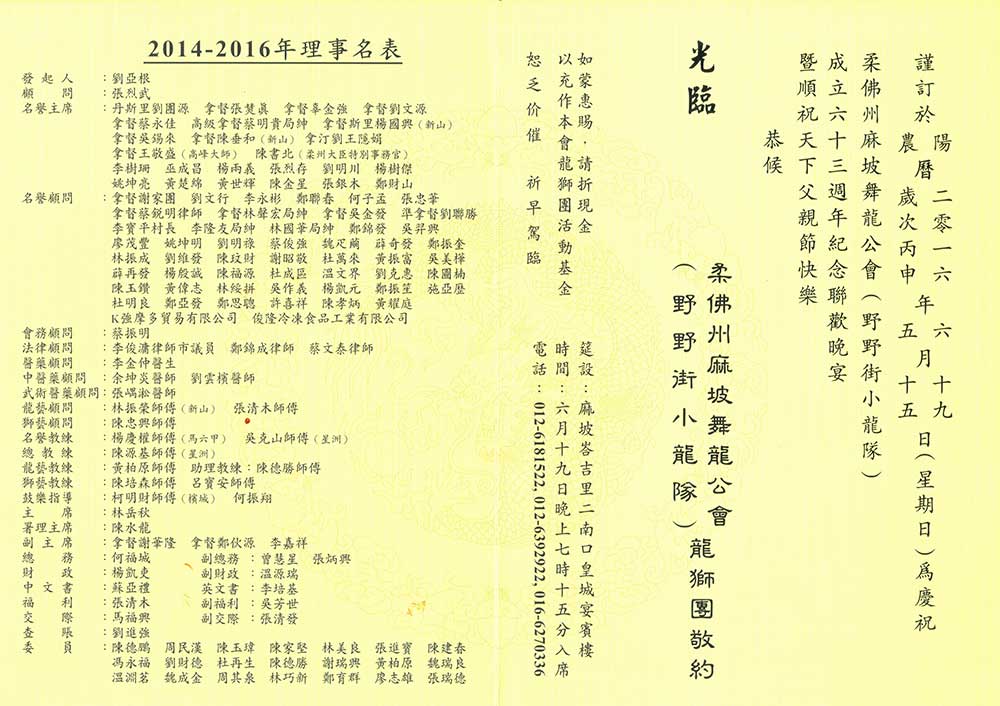 2014-2016年理事名表
發起人：劉亞根
顧問：張烈武
名譽主席：丹斯里劉團源 拿督張楚眞 拿督辜金強 拿督劉文源
拿督蔡永佳 高級拿督蔡明貴局紳 拿督斯里楊國興(新山)
拿督吳錫來 拿督陳垂和(新山) 拿汀劉王隱娟
拿督王敬盛(高峰大師) 陳書北(柔州大臣特別事務官)
李樹珊 巫成昌 楊兩義 張烈存 劉明川 楊樹傑
姚坤亮 黃楚綿 黃世輝 陳金星 張銀木 鄭財山
名譽顧問：拿督謝家團 劉文行 李永彬 鄭聯春 何子孟 張忠華
拿督蔡銳明律師 拿督林聲宏局紳 拿督吳金發 準拿督劉聯勝
李寶平村長 李隆友局紳 林國華局紳 鄭錦發 吳羿興
廖茂豐 姚坤明 劉明祿 蔡俊強 魏疋蕳 薛奇發 鄭振金
林振成 劉維發 陳玟財 謝昭敬 杜萬來 黃振富 吳美樺
薛再發 楊般誠 陳福源 杜成區 溫文界 劉克惠 陳圖楠
陳玉鑽 黃偉志 林綏拼 吳作義 楊凱元 鄭振笙 施亞歷
杜明良 鄭亞發 鄭思聰 許喜祥 陳孝炳 黃耀庭
K強摩多貿易有限公司 俊隆冷凍食品工業有限公司
會務顧問：蔡振明
法律顧問：李俊濂律師市議員 鄭錦成律師 蔡文泰律師
醫藥顧問：李金仲醫生
中醫藥顧問：余坤炎醫師 劉雲檳醫師
武術醫藥顧問：張嵎淞醫師
龍藝顧問：林振榮師傅(新山) 張清木師傅
獅藝顧問：陳忠興師傅
名譽教練：楊慶權師傅(馬六甲) 吳克山師傅(星洲)
總教練：陳源基師傅(星洲)
龍藝教練：黃柏原師傅 助理教練：陳德勝師傅
獅藝教練：陳培森師傅 呂寶安師傅
鼓樂指導：柯明財師傅(檳城) 何振翔
主席：林岳秋
署理主席：陳水龍
副主席：拿督謝華隆 拿督鄭伙源 李嘉祥
總務：何福城 副總務：曾慧星 張炳興
財政：楊凱吏 副財政：溫源瑞
中文書：蘇亞禮 英文書：李培基
福利：張清木 副福利：吳芳世
交際：馬福興 副交際：張清發
查賬：劉進強
委員：陳德鵬 周民漢 陳玉璋 陳家堅 林美良 張進寶 陳建春
馮永福 劉財德 杜再生 陳德勝 謝瑞興 黃柏原 魏瑞良
溫淵茗 魏成金 周其泉 林巧新 鄭育群 廖志雄 張瑞德
謹訂於陽曆二零一六年六月十九日(星期日)爲慶祝
農曆歲次丙申年五月十五
柔佛州麻坡舞龍公會(野野街小龍隊)
成立六十三週年紀念聯歡晚宴
暨順祝天下父親節快樂
恭候
光臨
柔佛州麻坡舞龍公會
(野野街小龍隊)
龍獅團敬約
如蒙惠賜，請折現金
以充作本會龍獅團活動基金
恕乏价催 祈早駕臨
筵設：麻坡峇吉里二南口皇城宴賓樓
時間：六月十九日晚上七時十五分入席
電話：012-6181522, 012-6392922, 016-6270336